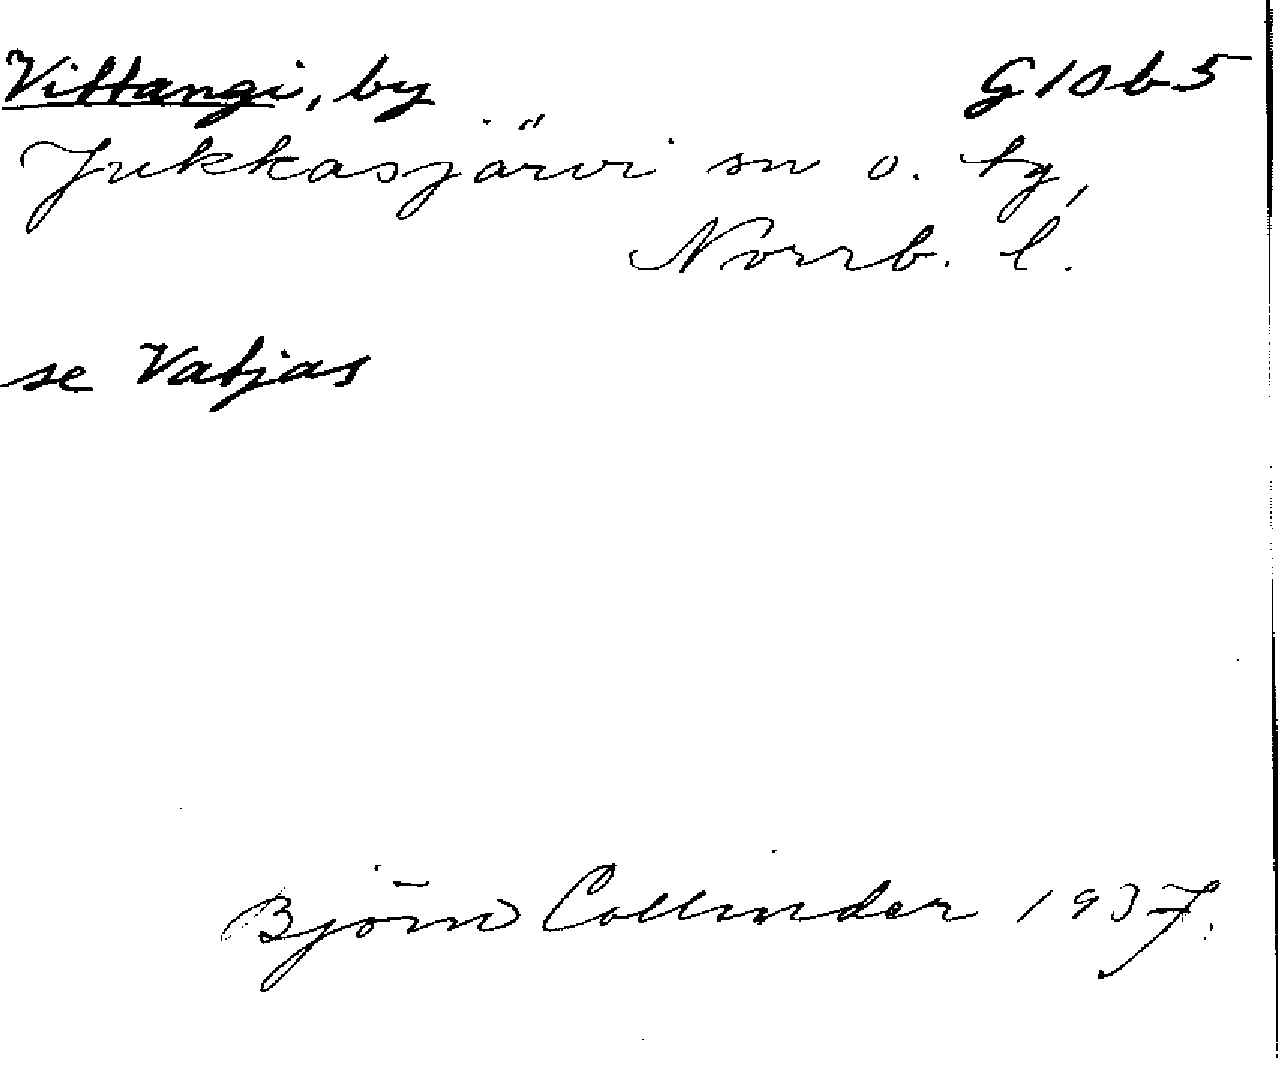 Vittangi, by G10b5
Jukkasjärvi sn o. tg,
Norrb. l.
se Vatjas
Björn Collinder 1937.